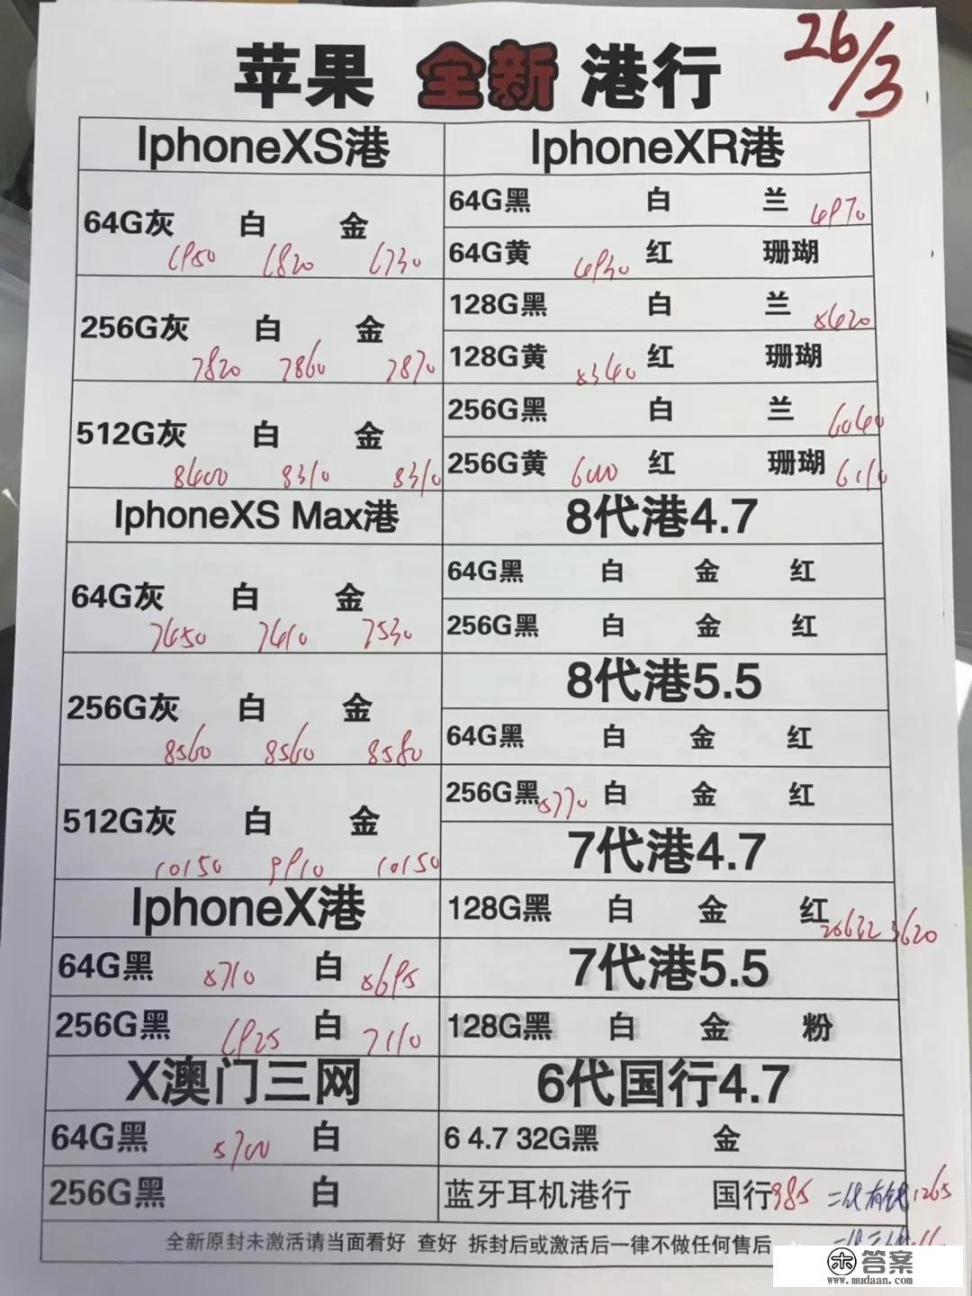 苹果 全新 港行
26/3
IphoneXS港
64G灰 白 金
6950 6820 6730
256G灰 白 金
7820 7860 7870
512G灰 白 金
8400 8310 8310
IphoneXS Max港
64G灰 白 金
7450 7410 7530
256G灰 白 金
8560 8560 8580
512G灰 白 金
10150 9910 10150
IphoneX港
64G黑 5710 白 5695
256G黑 6925 白 7110
X澳门三网
64G黑 5700 白
256G黑 白
IphoneXR港
64G黑 白 兰 4970
64G黄 4930 红 珊瑚
128G黑 白 兰 5420
128G黄 5340 红 珊瑚
256G黑 白 兰 6040
256G黄 6000 红 珊瑚 6110
8代港4.7
64G黑 白 金 红
256G黑 白 金 红
8代港5.5
64G黑 白 金 红
256G黑 5770 白 金 红
7代港4.7
128G黑 白 金 红 3620
7代港5.5
128G黑 白 金 粉
6代国行4.7
6 4.7 32G黑 金
蓝牙耳机港行 国行985 二代有线1265
全新原封未激活请当面看好 查好 拆封后或激活后一律不做任何售后
答案
www.mudaan.com